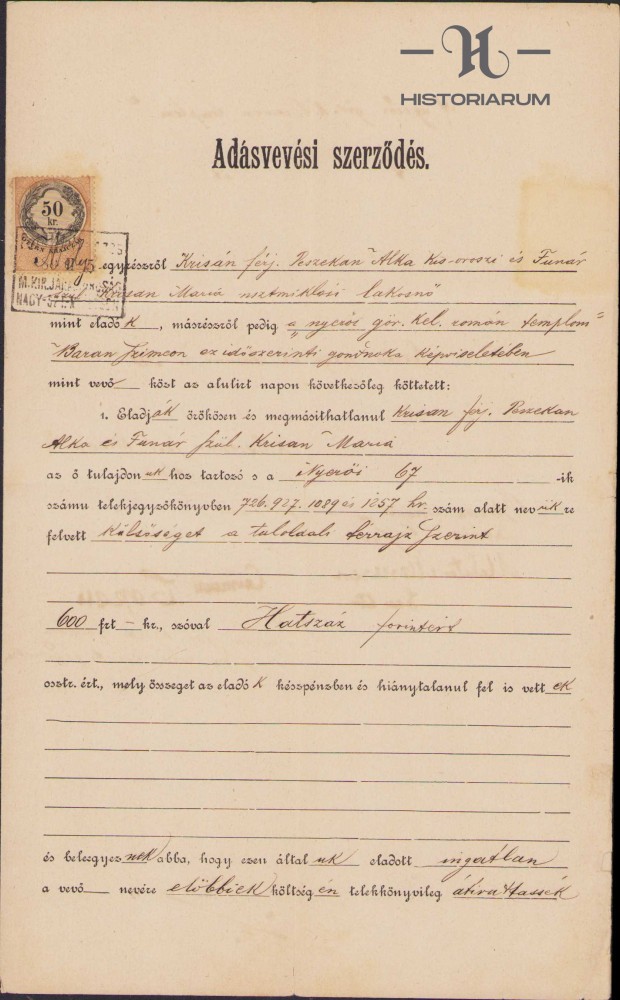 H
HISTORIARUM
Adásvevési szerződés.
50
kr.
M.KIR.JÁR
NAGY-SZ
egyrészről Krisán férj. Peszekan Alka Kis-oroszi és Funár
Krisan Mariá nsztmiklósi lakosnő
mint eladó k, másrészről pedig a nyerói gör. kel. román templom
Baran Szimeon ez időszerinti gondnoka képviseletében
mint vevő közt az alulirt napon következőleg köttetett:
1. Eladják örökösen és megmásithatlanul Krisan férj. Peszekan
Alka és Funár szül. Krisan Mariá
az ő tulajdon uk hoz tartozó s a Nyerói 67 -ik
számu telekjegyzőkönyvben 726. 927. 1089 és 1257 hr. szám alatt nev ük re
felvett külsőséget a túloldali térrajz szerint
600 frt – kr., szóval Hatszáz forintért
osztr. ért., mely összeget az eladó k készpénzben és hiánytalanul fel is vett ek
és beleegyez nek abba, hogy ezen által uk eladott ingatlan
a vevő nevére előbbiek költség én telekkönyvileg átirattassék